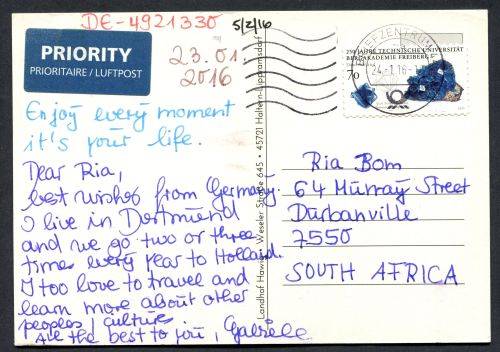 DE-4921330
5/2/16
PRIORITY
PRIORITAIRE / LUFTPOST
23.01.
2016
Enjoy every moment
it's your life.
Dear Ria,
best wishes from Germany.
I live in Dortmund
and we go two or three
times every year to Holland.
I too love to travel and
learn more about other
peoples' culture.
All the best to you, Gabriele
Landhof Hawig • Weseler Straße 645 • 45721 Haltern-Lippramsdorf
250 JAHRE TECHNISCHE UNIVERSITÄT
BERGAKADEMIE FREIBERG
70
BRIEFZENTRUM
24.-1.16
Ria Bom
64 Murray Street
Durbanville
7550
SOUTH AFRICA